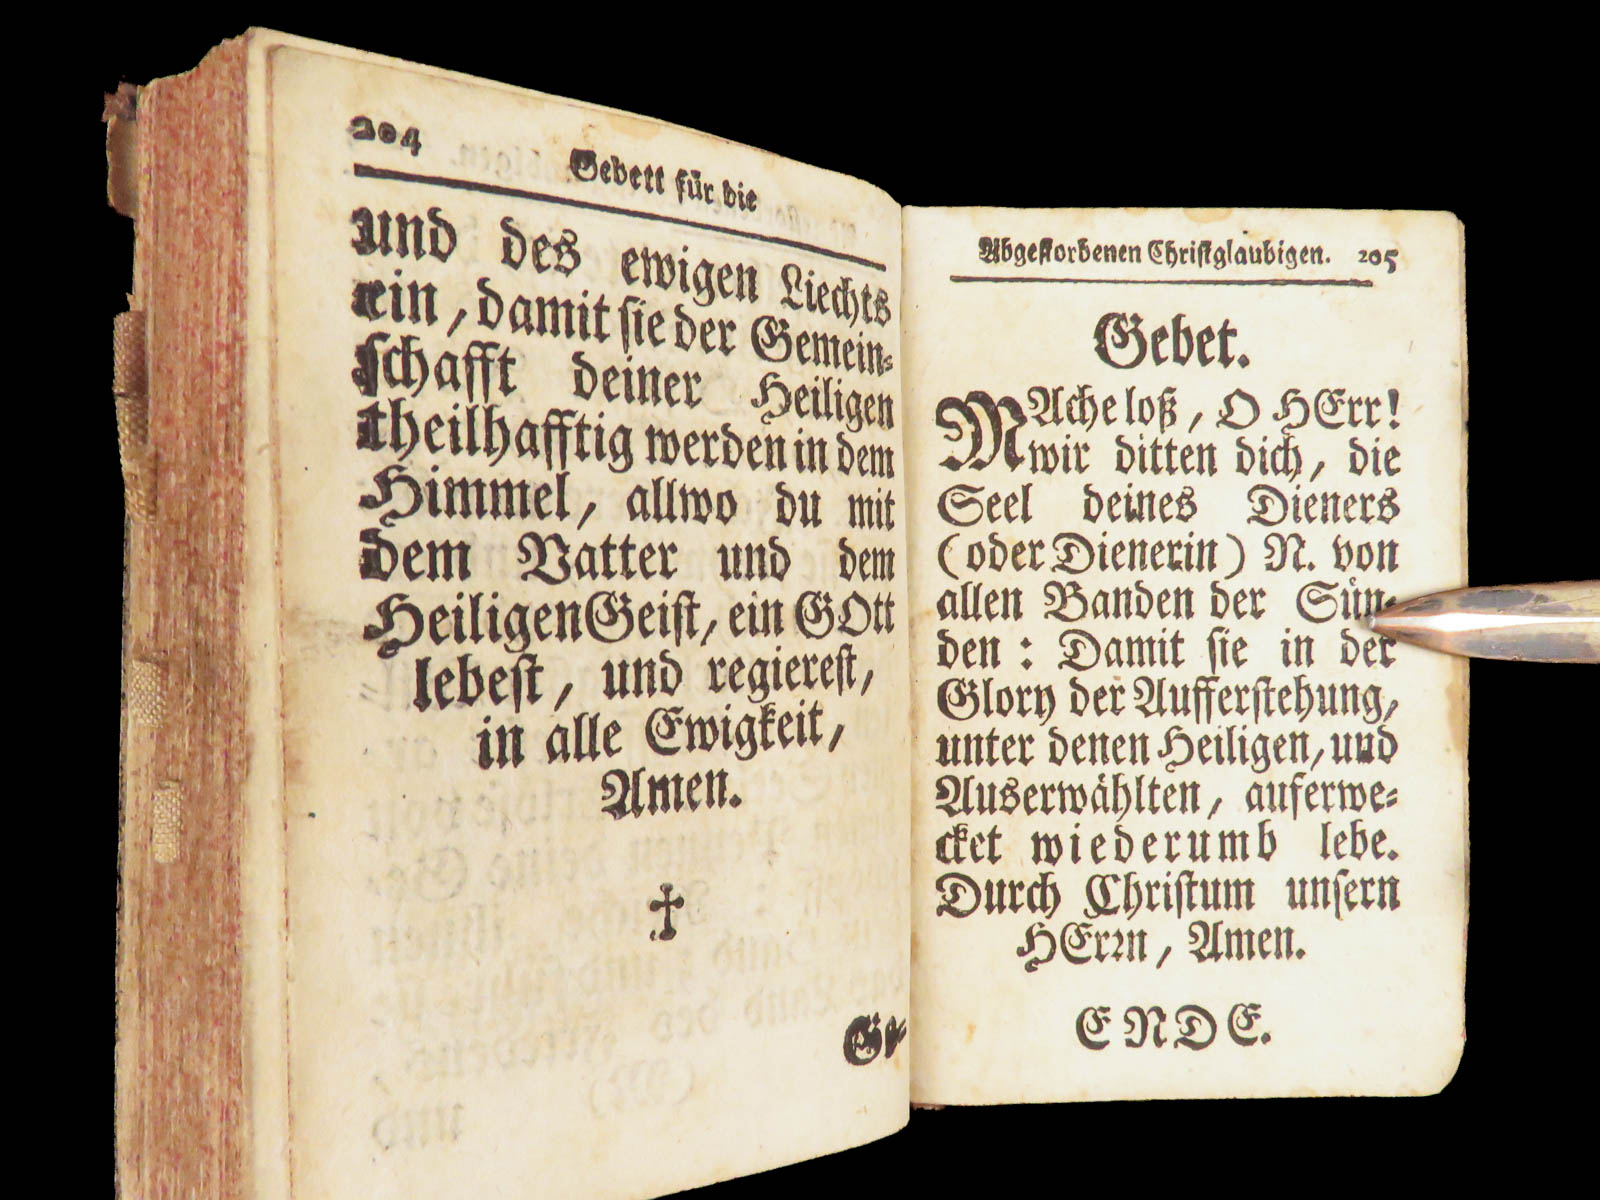 204
Gebett für die
und des ewigen Liechts
ein, damit sie der Gemein-
schafft deiner Heiligen
theilhafftig werden in dem
Himmel, allwo du mit
dem Vatter und dem
Heiligen Geist, ein GOtt
lebest, und regierest,
in alle Ewigkeit,
Amen.
Ge-
Abgestorbenen Christglaubigen. 205
Gebet.
MAche loß, O HErr!
wir bitten dich, die
Seel deines Dieners
(oder Dienerin) N. von
allen Banden der Sün-
den: Damit sie in der
Glory der Aufferstehung,
unter denen Heiligen, und
Auserwählten, auferwe-
cket wiederumb lebe.
Durch Christum unsern
HErrn, Amen.
ENDE.